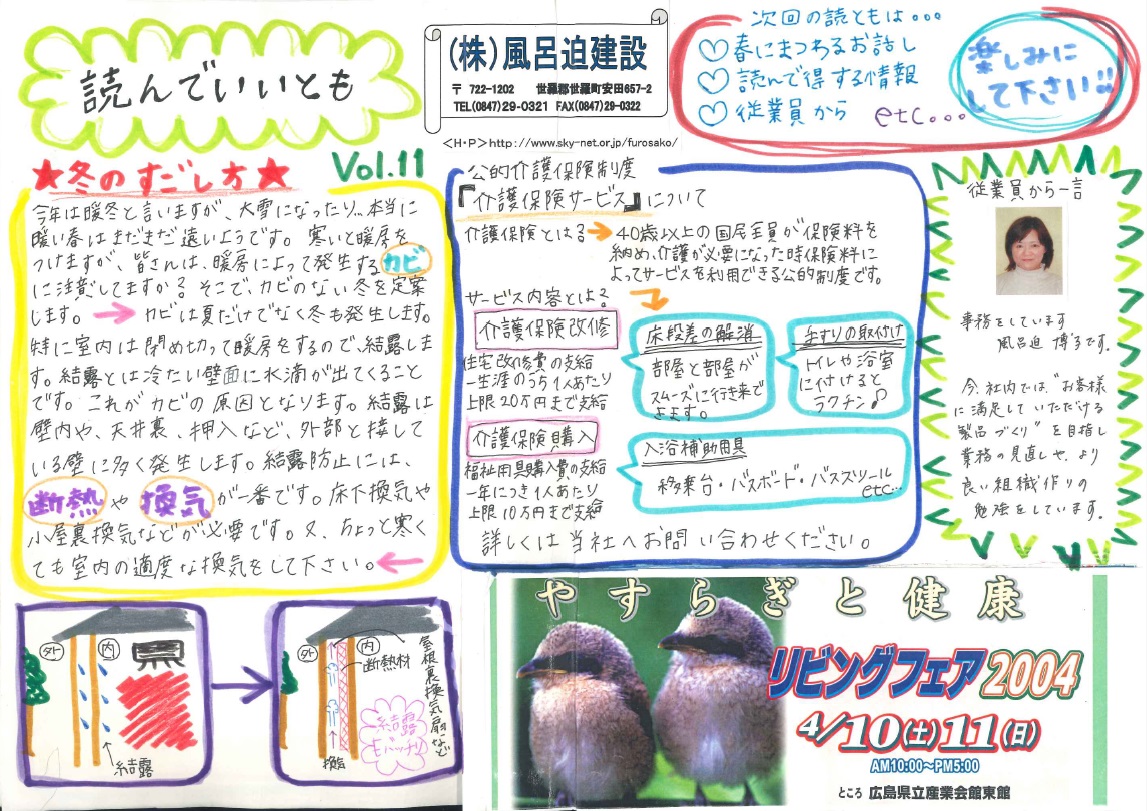 読んでいいとも
Vol.11
(株)風呂迫建設
〒 722-1202 世羅郡世羅町安田657-2
TEL(0847)29-0321 FAX(0847)29-0322
<H・P>http://www.sky-net.or.jp/furosako/
次回の読ともは・・・
♡春にまつわるお話し
♡読んで得する情報
♡従業員から etc...
楽しみに
して下さい!!
★冬のすごし方★
今年は暖冬と言いますが、大雪になったり…本当に
暖い春はまだまだ遠いようです。寒いと暖房を
つけますが、皆さんは、暖房によって発生するカビ
に注意してますか？そこで、カビのない冬を定案
します。→ カビは夏だけでなく冬も発生します。
特に室内は閉め切って暖房をするので、結露しま
す。結露とは冷たい壁面に水滴が出てくること
です。これがカビの原因となります。結露は
壁内や、天井裏、押入など、外部と接して
いる壁に多く発生します。結露防止には、
断熱や換気が一番です。床下換気や
小屋裏換気などが必要です。又、ちょっと寒く
ても室内の適度な換気をして下さい。←
外
内
結露
外
内
断熱材
換気
屋根裏換気扇など
結露
もバッチリ
公的介護保険制度
『介護保険サービス』について
介護保険とは？→ 40歳以上の国民全員が保険料を
納め、介護が必要になった時保険料に
よってサービスを利用できる公的制度です。
サービス内容とは？
介護保険改修
住宅改修費の支給
一生涯のうち1人あたり
上限20万円まで支給
床段差の解消
部屋と部屋が
スムーズに行き来で
きます。
手すりの取付け
トイレや浴室
に付けると
ラクチン♪
介護保険購入
福祉用具購入費の支給
一年につき1人あたり
上限10万円まで支給
入浴補助用具
移乗台・バスボード・バススツール
etc…
詳しくは当社へお問い合わせください。
従業員から一言
事務をしています
風呂迫 博子です。
今、社内では、"お客様
に満足していただける
製品づくり"を目指し
業務の見直しや、より
良い組織作りの
勉強をしています。
やすらぎと健康
リビングフェア2004
4/10(土)11(日)
AM10:00〜PM5:00
ところ 広島県立産業会館東館